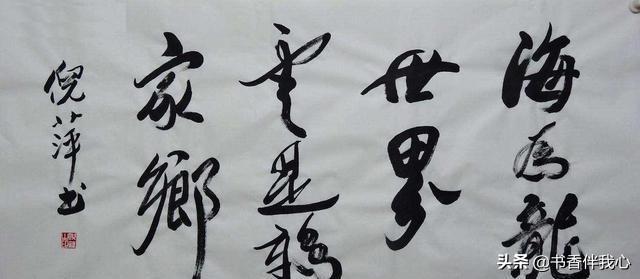 海为龍
世界
雲是鶴
家鄉
倪萍书
头条 @书香伴我心